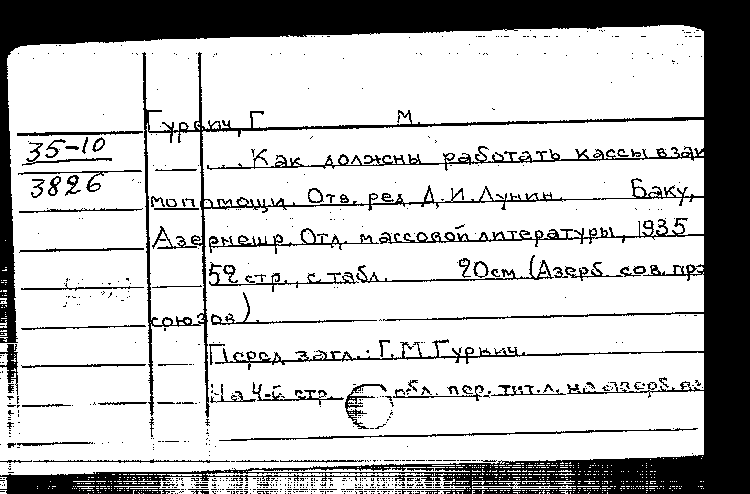 Гурвич, Г. М.
35-10
3826
... Как должны работать кассы взаи
мопомощи. Отв. ред Д. И. Лунин. Баку,
Азернешр. Отд. массовой литературы, 1935
52 стр., с табл. 20см. (Азерб. сов. про
союзов).
Перед загл.: Г. М. Гурвич.
На 4-й стр. обл. пер. тит. л. на азерб. яз